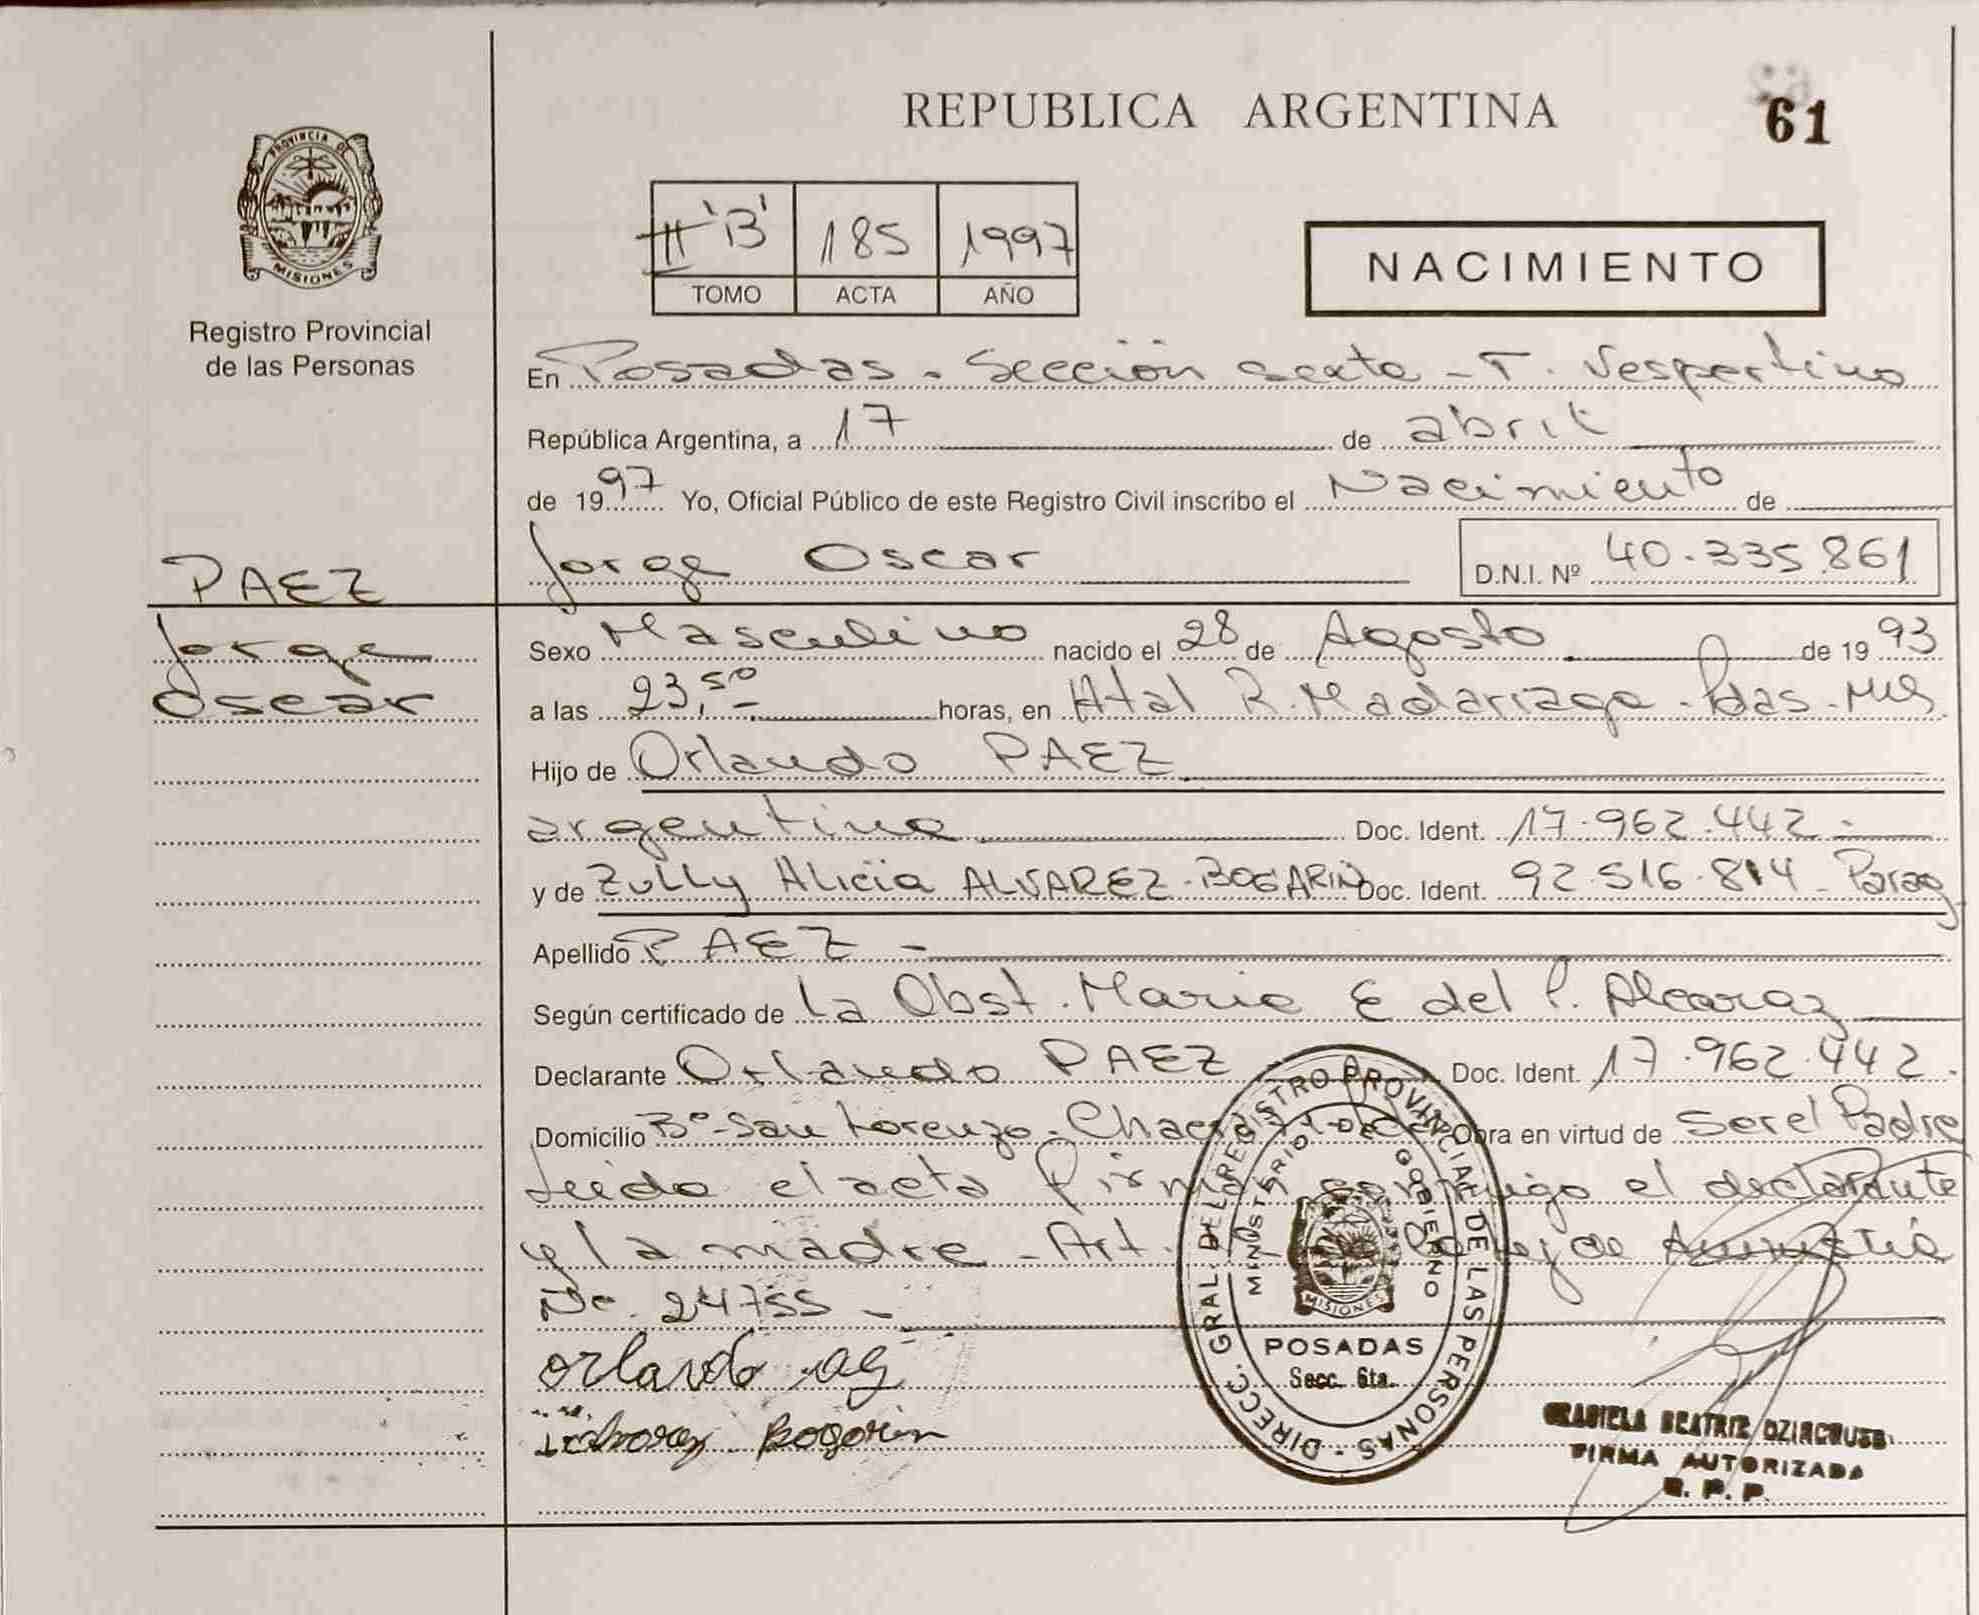 REPUBLICA ARGENTINA
61
PROVINCIA DE
MISIONES
Registro Provincial
de las Personas
II 'B' 185 1997
TOMO ACTA AÑO
NACIMIENTO
En Posadas - Sección sexta - T. Vespertino
República Argentina, a 17 de abril
de 1997 Yo, Oficial Público de este Registro Civil inscribo el Nacimiento de
Jorge Oscar D.N.I. Nº 40.335.861
PAEZ
Jorge
Oscar
Sexo Masculino nacido el 28 de Agosto de 1993
a las 23,50 horas, en Htal R. Madariaga - Pdas - Mis
Hijo de Orlando PAEZ
argentino Doc. Ident. 17.962.442.-
y de Zully Alicia ALVAREZ-BOGARIN Doc. Ident. 92.516.814 - Parag
Apellido PAEZ -
Según certificado de La Obst. Maria E del P. Alcaraz
Declarante Orlando PAEZ Doc. Ident. 17.962.442.
Domicilio Bº San Lorenzo - Obra en virtud de Ser el Padre
Leido el acta Firman conmigo el declarante
y la madre - Art. Ley de Amnistia
No. 24755 -
Orlando
Bogorin
DIRECC. GRAL. DEL REGISTRO PROVINCIAL DE LAS PERSONAS -
MINISTERIO DE GOBIERNO
MISIONES
POSADAS
Secc. 6ta.
GRACIELA BEATRIZ
FIRMA AUTORIZADA
R. P. P.